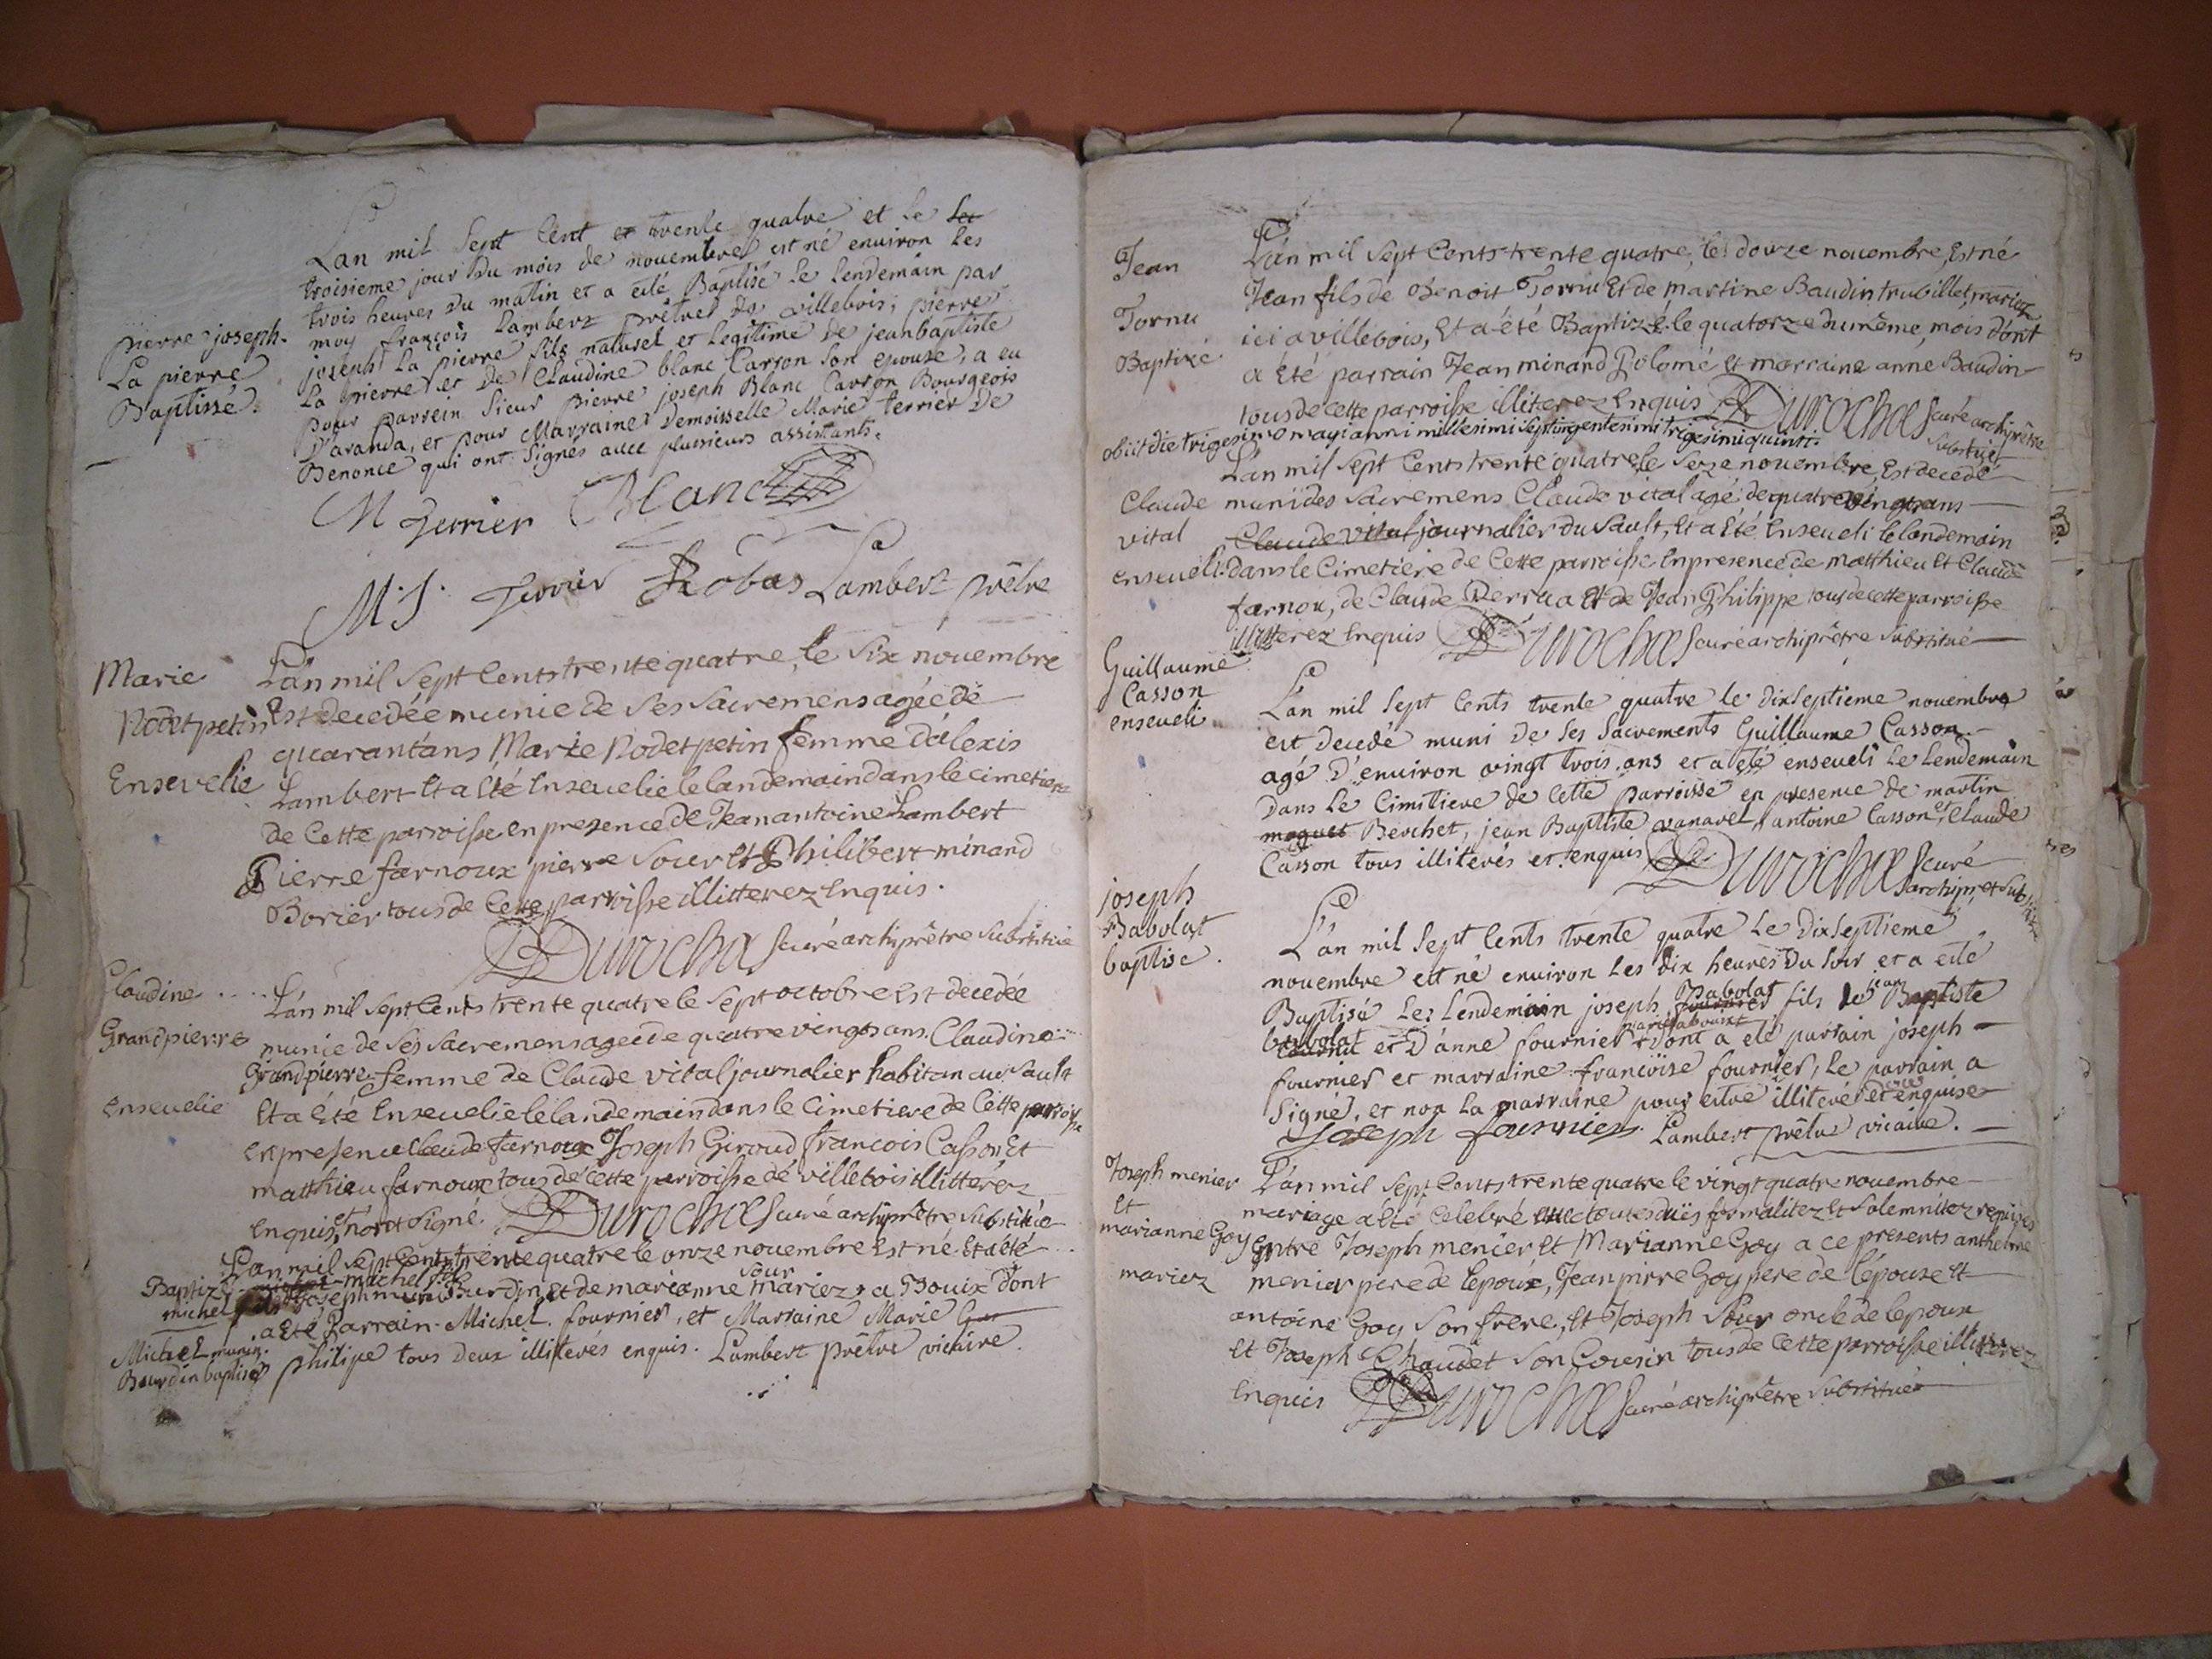 Lan mil Sept Cent et trente quatre et le Se
troisieme jour Du mois de novembre est né environ les
trois heures Du matin et a eté Baptisé le lendemain par
moy françois Lambert prêtre de villebois, pierre
pierre joseph joseph La pierre fils naturel et legitime de jeanbaptiste
La pierre La pierre et De Claudine blanc Carron son epouse, a eu
Baptissé pour parrein Sieur pierre joseph Blanc Carron Bourgeois
D'aranda, et pour Marraine Demoisselle Marie terrier De
Benonce qui ont Signés avec plussieurs assistants.
M Terrier Blanc
M. J. Terrier Robas Lambert prêtre
Marie Lan mil Sept Cents trente quatre, le Six novembre
Nodetpetin Est decedée munie de Ses Sacremens agée de
quarant'ans Marie Nodetpetin femme d'alexis
Ensevelie Lambert Et a Eté Ensevelie le landemain dans le cimetiere
de Cette parroisse en presence de Jean antoine Lambert
Pierre farnoux pierre Sour Et Philibert minand
Borier tous de Cette parroisse illitterez Enquis.
Durochas curé archiprêtre Substitué
Claudine .... Lan mil Sept Cents trente quatre le Sept octobre Est decedée
Grandpierre munie de Ses Sacremens agee de quatre vingts ans Claudine
Grandpierre femme de Claude vital journalier habitan au Sault
Ensevelie Et a Eté Ensevelie le landemain dans le Cimetiere de Cette parroisse
en presence Claude farnoux Joseph Giroud francois Casson Et
matthieu farnoux tous de Cette parroisse de villebois illitterez
Enquis et n'ont Signé. Durochas curé archiprêtre Substitué
Lan mil Sept Cents trente quatre le onze novembre Est né Et a été
Baptizé michel fils
michel de Joseph munin Burdin, Et de marianne Sour mariez a Bouix dont
a Eté Parrain Michel fournier, et Marraine Marie
Michel munin
Bourdin baptisé philipe tous Deux illiterés enquis. Lambert prêtre vicaire.
Jean Lan mil Sept Cents trente quatre, le douze novembre, Est né
Tornu Jean fils de Benoit Tornu Et de martine Baudin trubillet mariez
Baptizé ici a villebois, Et a été Baptizé le quatorze du même mois dont
a été parrain Jean minand Polomé Et marraine anne Baudin
tous de cette parroisse illiterez Enquis Durochas curé archiprêtre
Substitué
obiit die trigesimo mayi anni millesimi Septingentesimi trigesimi quinti
Lan mil Sept Cents trente quatre le Seze novembre, Est decedé
Claude muni des Sacremens Claude vital agé de quatre vingts ans
vital Claude vital journalier du Sault, Et a Eté Enseveli le landemain
enseveli dans le Cimetiere de Cette parroisse En presence de matthieu Et Claude
farnou, de Claude Perrua Et de Jean Philippe tous de cette parroisse
illitterez Enquis Durochas curé archiprêtre Substitué
Guillaume
Casson Lan mil Sept Cents trente quatre le Dixseptieme novembre
enseveli est Decedé muni De Ses Sacrements Guillaume Casson
agé D'environ vingt trois ans et a eté enseveli Le Lendemain
Dans Le Cimitiere de Cette parroisse en presence de martin
moguet Berchet, jean Baptiste vanavel, antoine Casson, et Claude
Casson tous illiterés et enquis Durochas curé
archipr. et Substitué
joseph
Babolat L'an mil Sept Cents trente quatre Le Dixseptieme
baptisé. novembre est né environ Les dix heures Du Soir et a eté
Baptisé Les Lendemain joseph Babolat fils de jean Baptiste
babolat et D'anne fournier mariés a bouix Dont a eté parrain joseph
fournier et marraine francoise fournier, Le parrain a
Signé, et non La marraine pour estre illiterée et enquise
Joseph fournier. Lambert prêtre vicaire.
Joseph menier Lan mil Sept Cents trente quatre le vingt quatre novembre
Et mariage a Eté Celebré avec toutes duës formalitez Et Solemnitez requises
marianne Goy Entre Joseph menier Et Marianne Goy a ce presents anthelme
mariez menier pere de l'epoux, Jean pierre Goy pere de l'épouse Et
antoine Goy Son frere, Et Joseph Sour oncle de l'epoux
Et Joseph Chaudet Son Cousin tous de Cette parroisse illitterez
Enquis Durochas curé archiprêtre Substitué